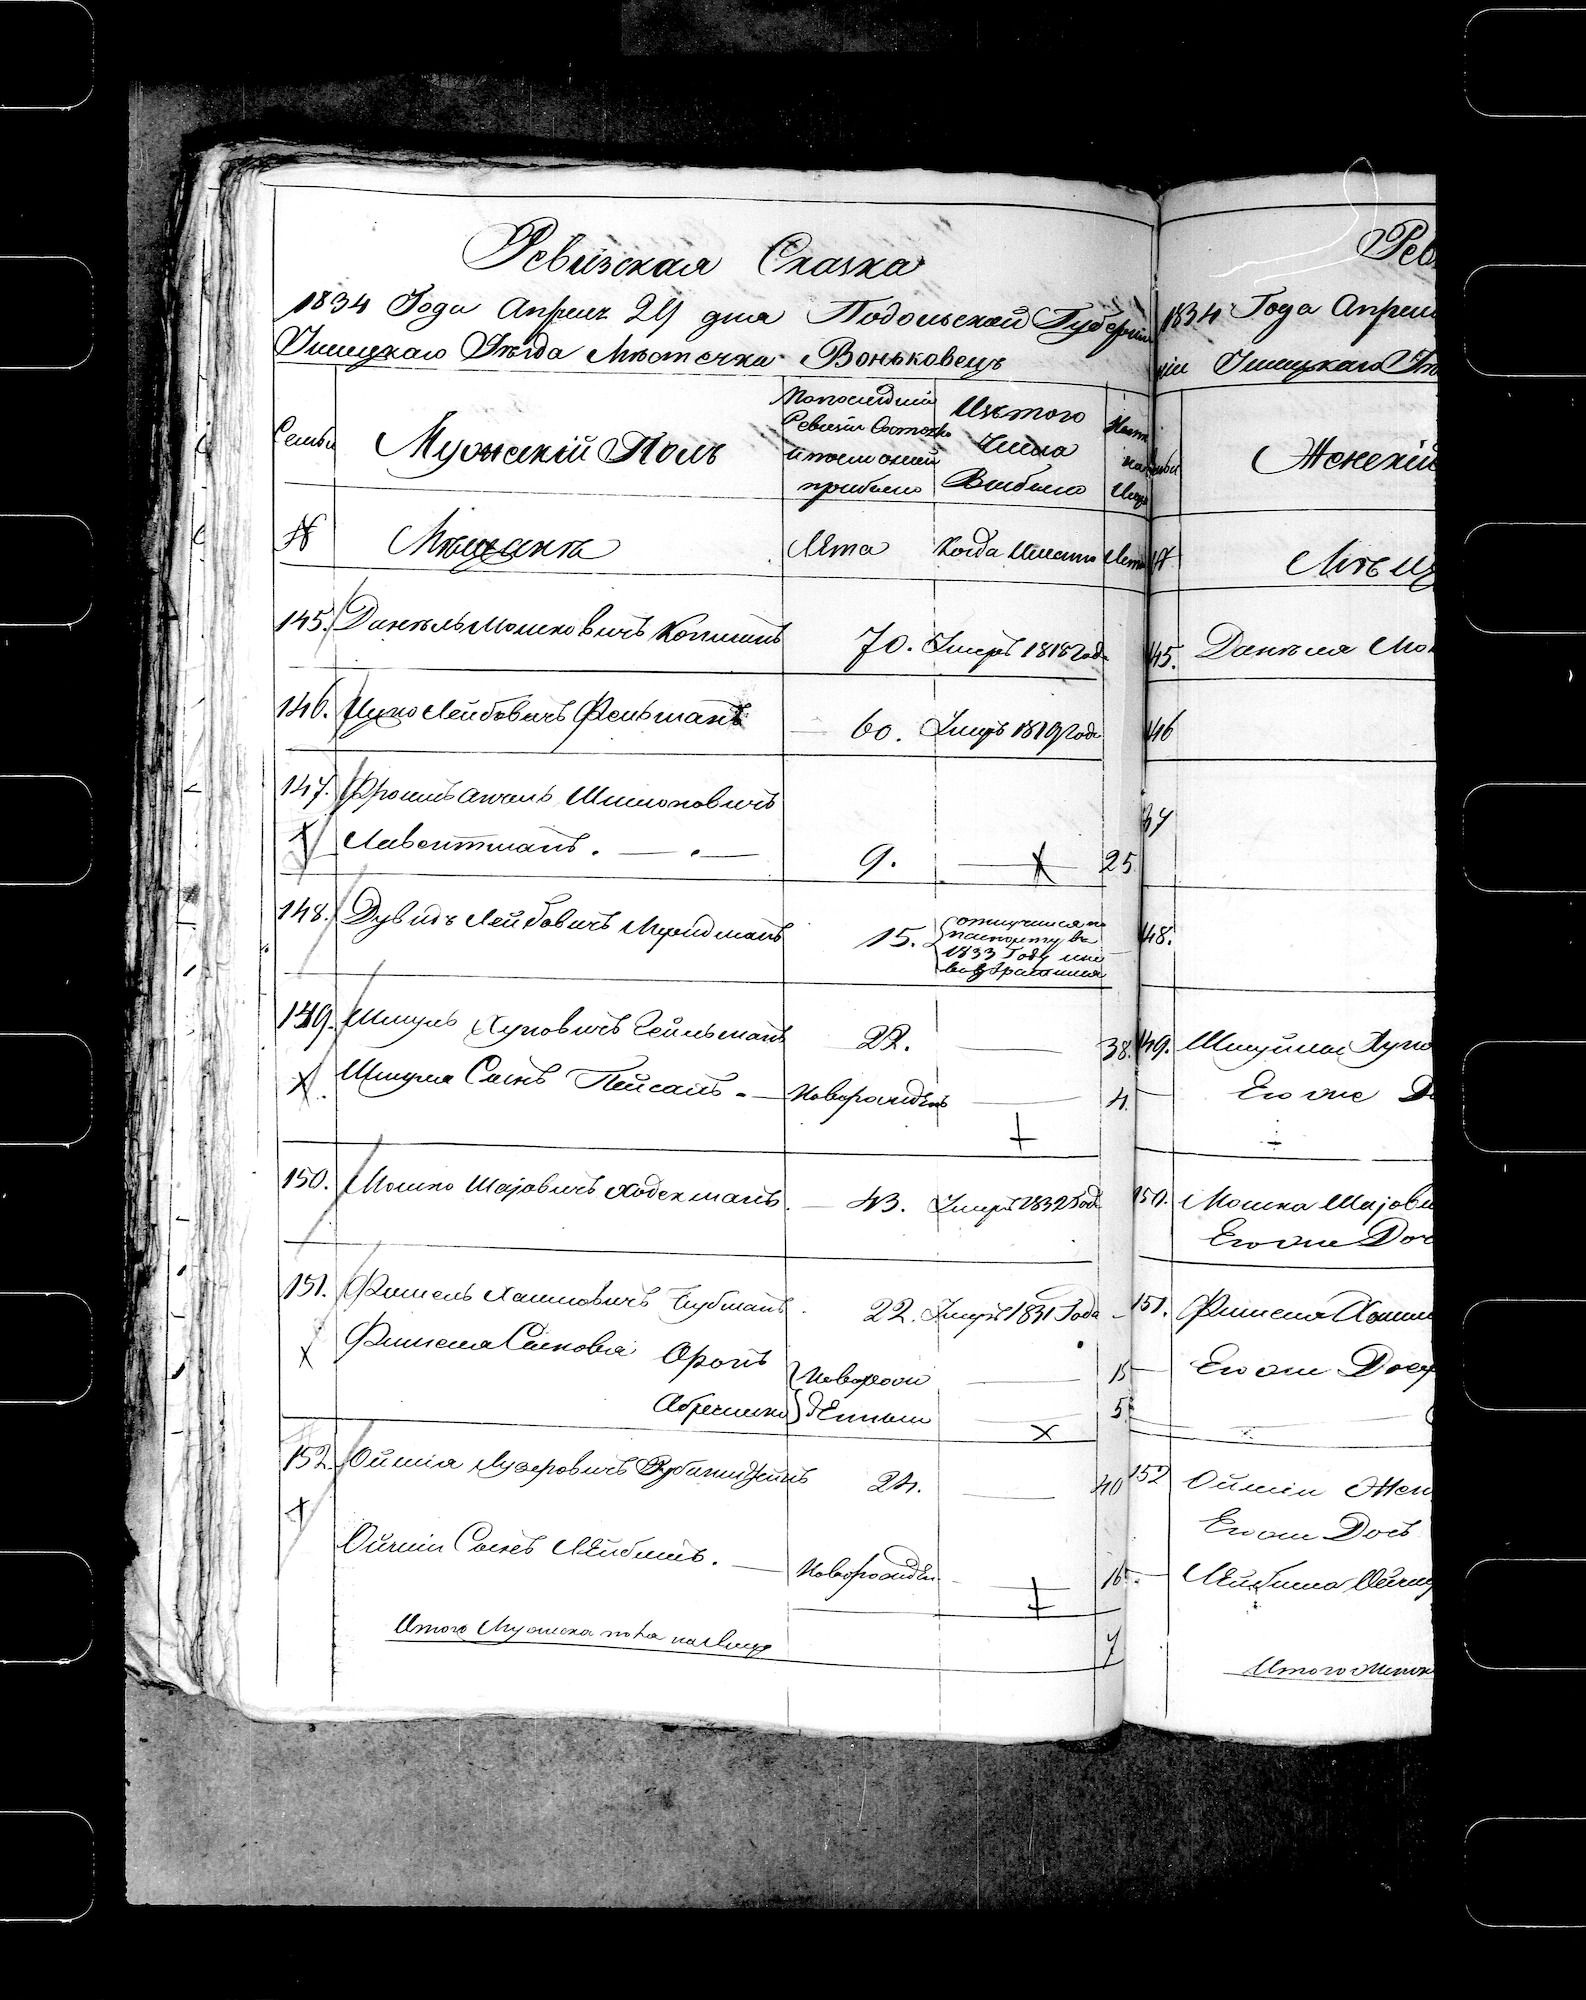 Ревизская Сказка
1834 Года Апреля 29 дня Подольской Губерніи
Ушицкаго Уѣзда Мѣстечка Воньковецъ
Семьи
Мужескій Полъ
По последней
Ревизіи Состояло
и после оной
прибыло
Изъ того
Числа
Выбыло
Мѣщанѣ
Лѣта
Когда Имянно
Лета
145. Данѣль Мошковичъ 70. Умеръ 1818 Года
146. Лейбовичъ Фельманъ 60. Умеръ 1819 Года
147. Фроимъ Анчель Шимоновичъ
9. 25
148. Дувидъ Лейбовичъ 15. отлучился по
паспорту въ
1833 Году и не
возвратился
149. Шмуль Хуновичъ Гейльманъ 22. 38.
Шмуля Сынъ Пейсахъ. Новорожденъ 4.
150. Мошко Шаiовичъ Ходекманъ. 43. Умеръ 1832 Года
151. Фишель Хаимовичъ Губманъ 22. Умеръ 1831 Года
Фишеля Сыновья Аронъ
Новорож 15
Абрумко денные 5
152. Ойшія Лузеровичъ 24. 40
Ойшіи Сынъ Лейбишъ. Новорожден 16
Итого Мужеска пола на лицо 7
Рев
1834 Года Апреля
ніи Ушицкаго Уѣ
Женскій
Мѣщ
145. Данѣля Мо
146
148.
149. Шмуйла Хуно
Его же
150. Мошка Шаiови
Его же Доч
151. Фишеля Хаим
Его же Доч
152 Ойшіи Жен
Его же Доч
Лейбиша Ойши
Итого Женск